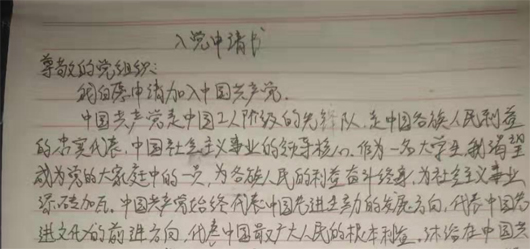 入党申请书
尊敬的党组织：
我自愿申请加入中国共产党。
中国共产党是中国工人阶级的先锋队，是中国各族人民利益
的忠实代表，中国社会主义事业的领导核心。作为一名大学生，我渴望
成为党的大家庭中的一员，为各族人民的利益奋斗终身，为社会主义事业
添砖加瓦。中国共产党始终代表中国先进生产力的发展方向，代表中国先
进文化的前进方向，代表中国最广大人民的根本利益。